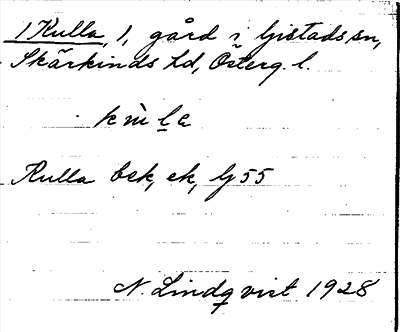 1 Kulla, 1, gård i Gistads sn,
Skärkinds hd, Österg. l.
Kulla bek, ek, Gj 55
N. Lindqvist 1928